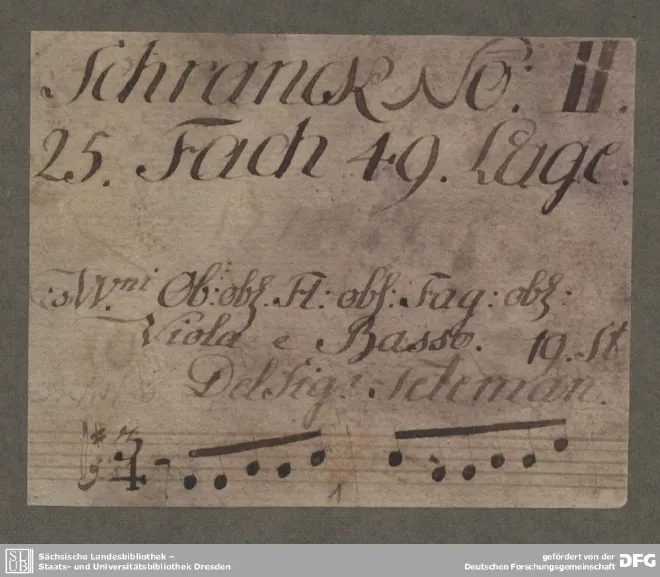 Schranck No: II.
25. Fach 49. Lage.
VV.ni Ob: obl. Fl: obl: Fag: obl:
Viola e Basso. 19. St
Del Sigr. Teleman.
1
SLUB
Sächsische Landesbibliothek –
Staats- und Universitätsbibliothek Dresden
gefördert von der
Deutschen Forschungsgemeinschaft
DFG